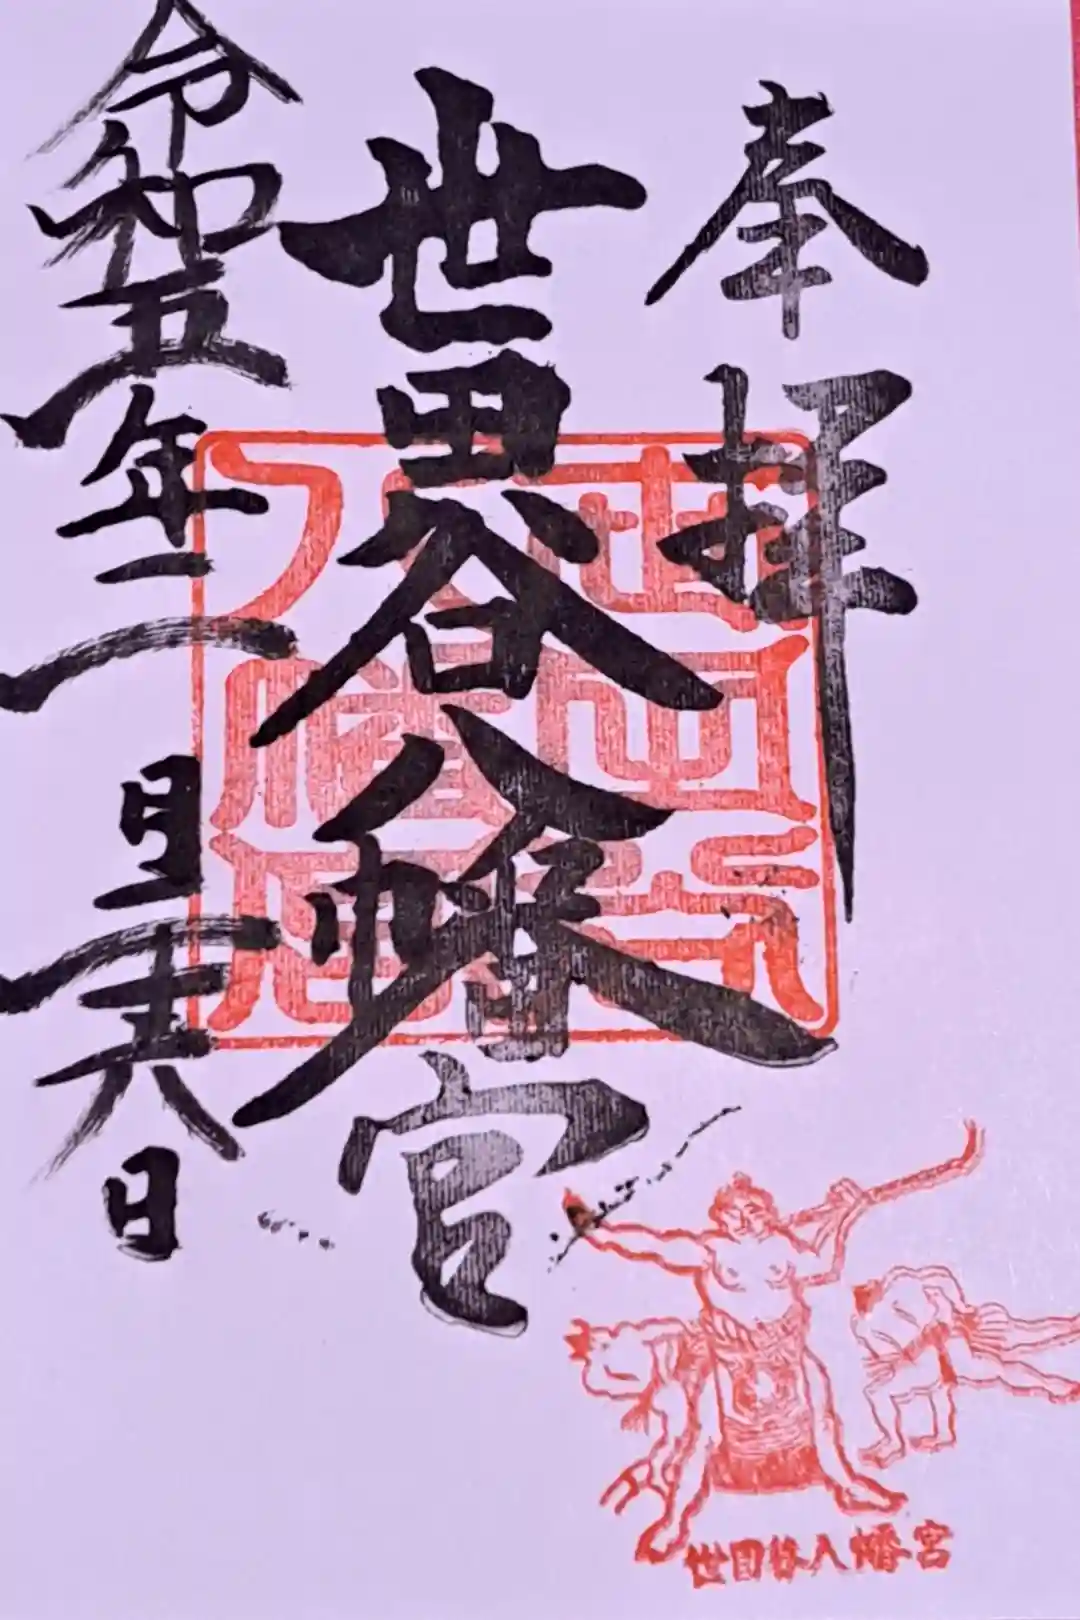 奉拝
世田谷八幡宮
令和五年二月二十六日
世田谷
八幡宮
世田谷八幡宮